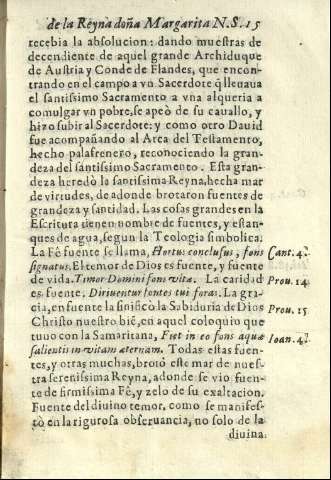 de la Reyna doña Margarita N.S. 15
recebia la absolucion: dando muestras de
decendiente de aquel grande Archiduque
de Austria y Conde de Flandes, que encon-
trando en el campo a vn Sacerdote q̃ lleuaua
el santissimo Sacramento a vna alqueria a
comulgar vn pobre, se apeò de su cauallo, y
hizo subir al Sacerdote: y como otro Dauid
fue acompañando al Arca del Testamento,
hecho palafrenero, reconociendo la gran-
deza del santissimo Sacramento. Esta gran-
deza heredò la santissima Reyna, hecha mar
de virtudes, de adonde brotaron fuentes de
grandeza y santidad. Las cosas grandes en la
Escritura tienen nombre de fuentes, y estan-
ques de agua, segun la Teologia simbolica.
La Fè fuente se llama, Hortus conclusus, fons
Cant. 4.
signatus. El temor de Dios es fuente, y fuente
de vida. Timor Domini fons vitæ. La caridad
Prou. 14
es fuente. Diriuentur fontes tui foras. La gra-
cia, en fuente la sinificò la Sabiduria de Dios
Prou. 15
Christo nuestro biẽ, en aquel coloquio que
tuuo con la Samaritana, Fiet in eo fons aquæ
Ioan. 4.
salientis in vitam æternam. Todas estas fuen-
tes, y otras muchas, brotò este mar de nues-
tra serenissima Reyna, adonde se vio fuen-
te de firmissima Fè, y zelo de su exaltacion.
Fuente del diuino temor, como se manifes-
tò en la rigurosa obseruancia, no solo de la
diuina